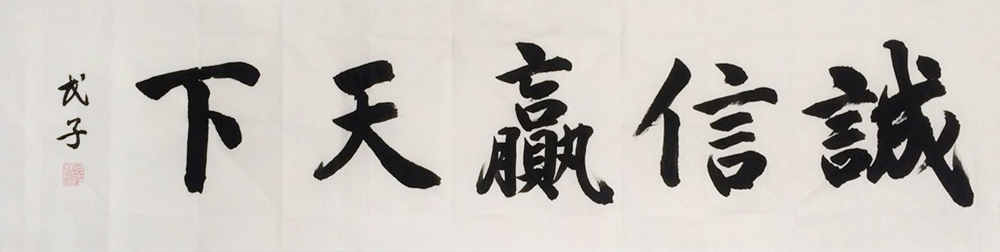 誠信贏天下
武子